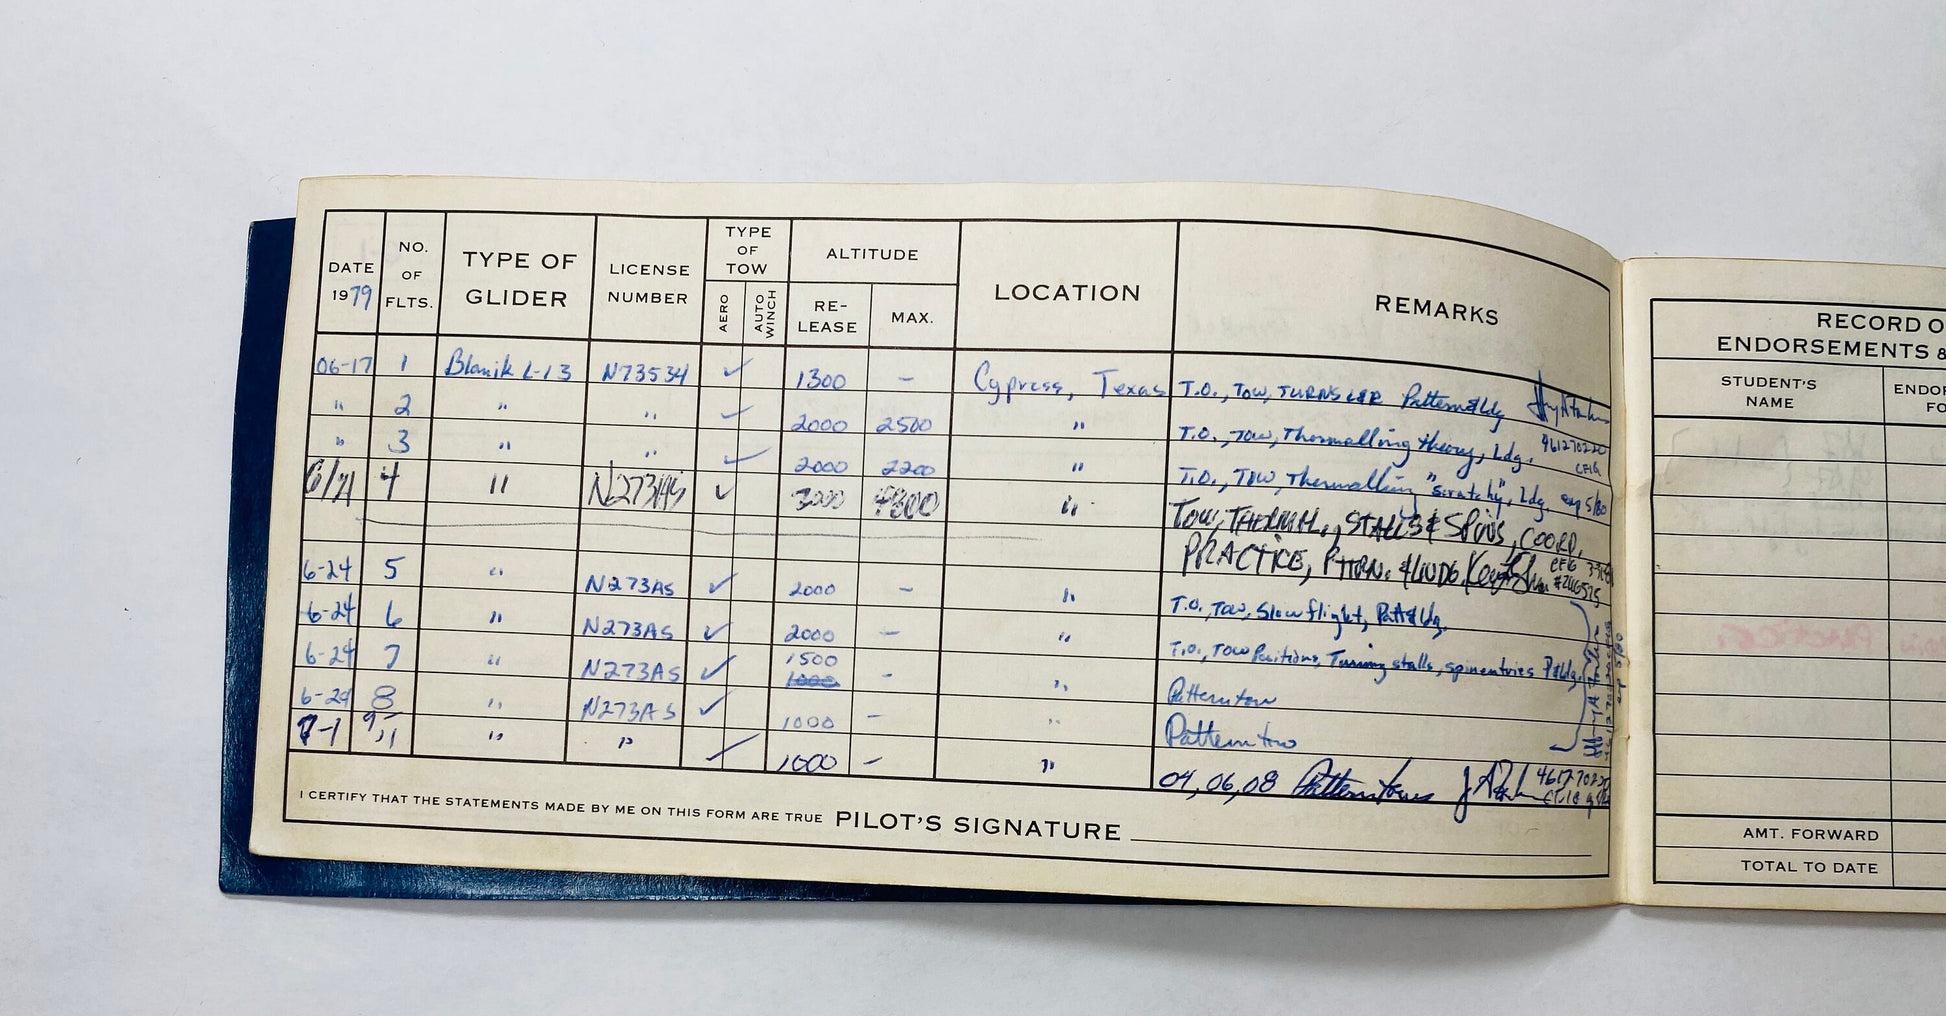 DATE 1979 NO. OF FLTS. TYPE OF GLIDER LICENSE NUMBER TYPE OF TOW AERO AUTO WINCH ALTITUDE RE-LEASE MAX. LOCATION REMARKS
06-17 1 Blanik L-13 N73534 ✓ 1300 – Cypress, Texas T.O., Tow, TURNS L&R Pattern & Ldg
" 2 " " ✓ 2000 2500 " T.O., Tow, Thermalling theory, Ldg. 461270220 CFIG
" 3 " " ✓ 2000 2200 " T.O., Tow, Thermalling "scratchy", Ldg. exp 5/80
6/21 4 " N273AS ✓ 3000 " TOW, THERMAL., STALLS & SPINS, COORD.
PRACTICE, PTTRN. & LNDG. CFIG
6-24 5 " N273AS ✓ 2000 – " T.O., Tow, Slow flight, Patt & Ldg.
6-24 6 " N273AS ✓ 2000 – " T.O., Tow Positions, Turning stalls, spin entries P & Ldg.
6-24 7 " N273AS ✓ 1500 – " Pattern tow
6-24 8 " N273AS ✓ 1000 – " Pattern tow
7-1 9-11 " " ✓ 1000 – " 04, 06, 08 Pattern tows
exp 5/80
I CERTIFY THAT THE STATEMENTS MADE BY ME ON THIS FORM ARE TRUE PILOT'S SIGNATURE
RECORD O
ENDORSEMENTS &
STUDENT'S NAME ENDOR FO
AMT. FORWARD
TOTAL TO DATE